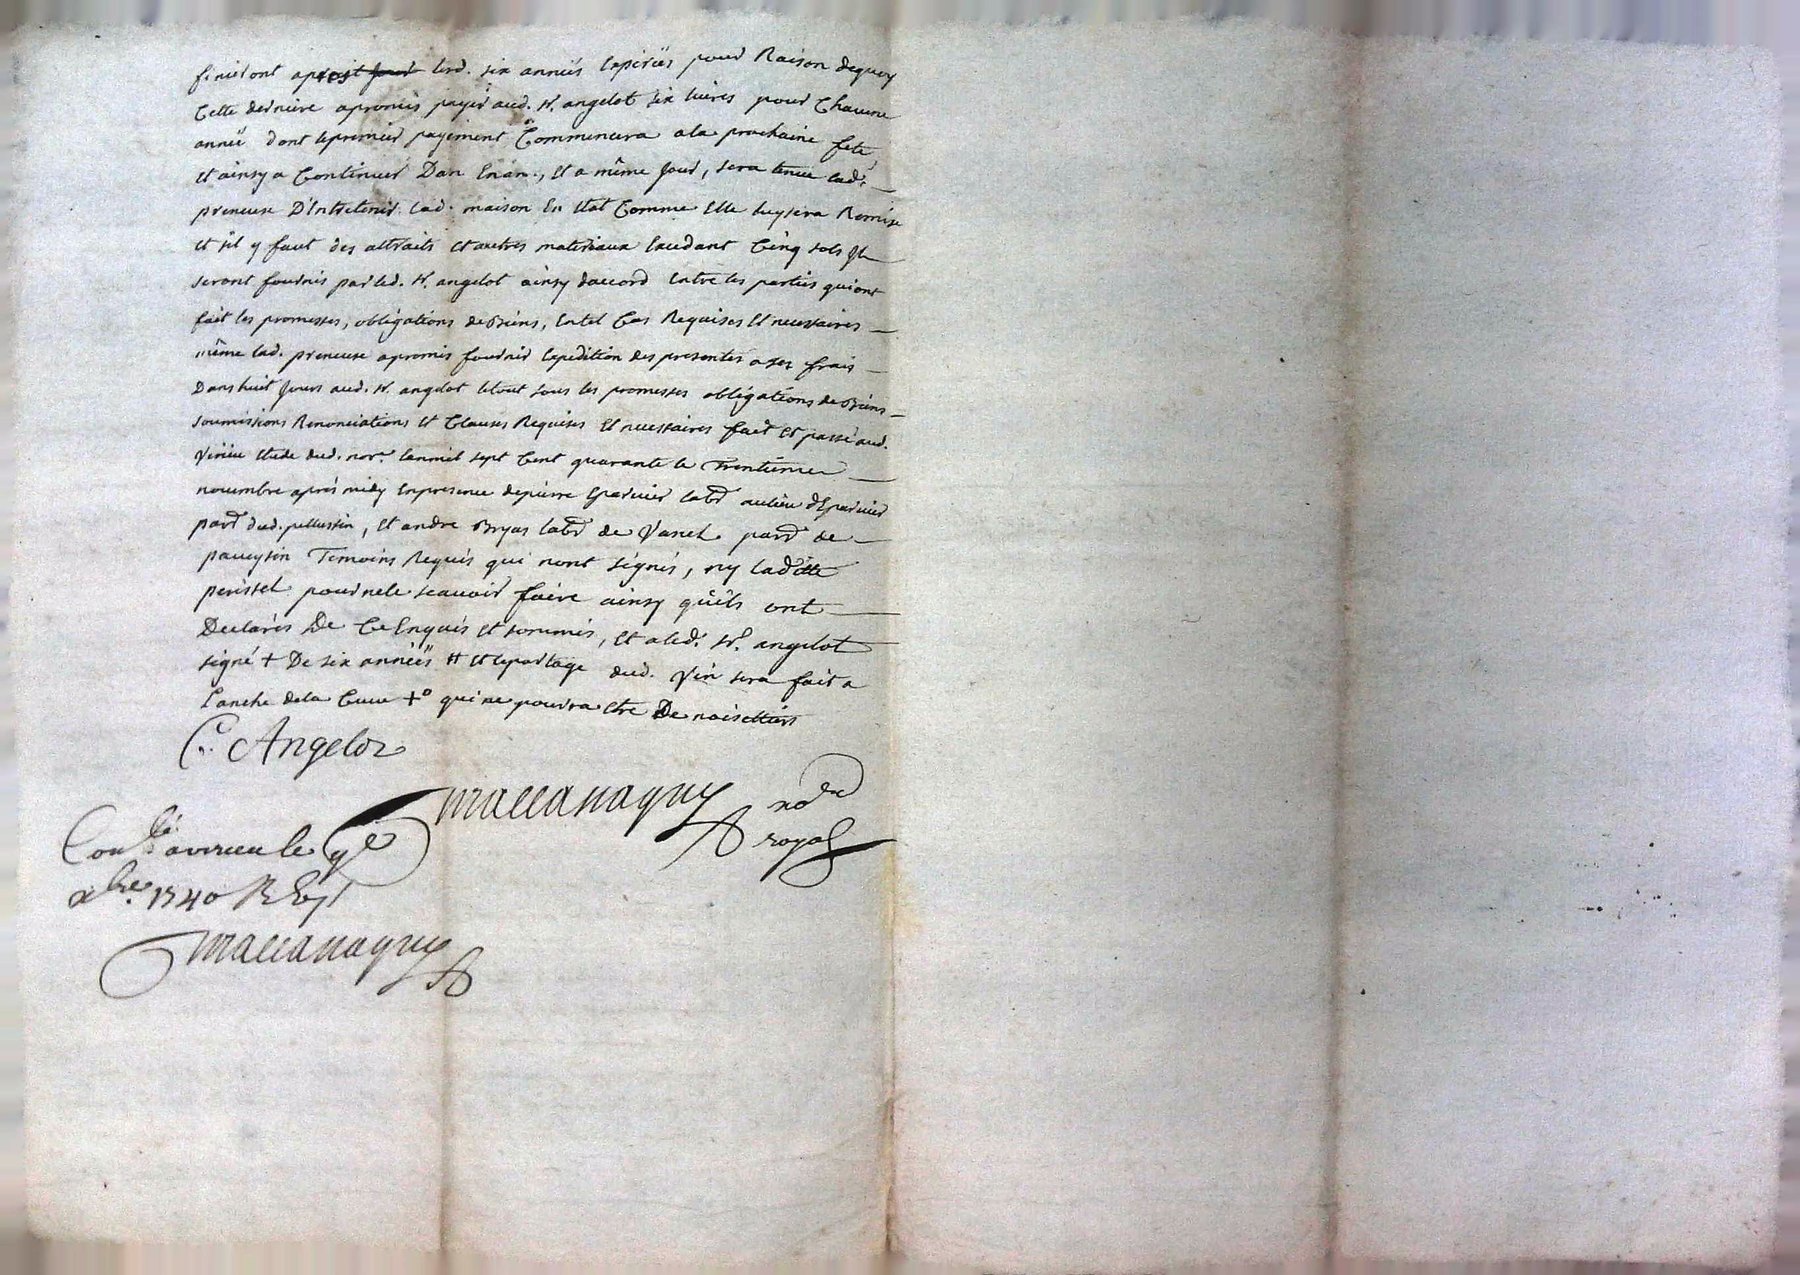 finiront apres lesd. six années Expirées pour Raison dequoy
Cette derniere apromis payer aud. sr. angelot six livres pour Chacune
année dont lepremier payement Commencera ala prochaine fete
Et ainsy a Continuer Dan Enan., Et a même Jour, sera tenue lad.
preneuse D'Entretenir lad. maison En Etat Comme Elle luy sera Remise
et s'il y faut des attraits et autres materiaux Excedant Cinq sols Jls
seront fournis par led. sr. angelot ainsy daccord Entre les parties qui ont
fait les promesses, obligations de Biens, En tel Cas Requises Et necessaires
même lad. preneuse apromis fournir Expedition des presentes a ses frais
Dans huit Jours aud. sr. angelot le tout sous les promesses obligations de Biens
soumissions Renonciations Et Clauses Requises Et necessaires fait Et passé aud.
Virieu Etude dud. nore. Lan mil sept Cent quarante le Trentieme
novembre aprés midy En presence de pierre Eparvier labr. au lieu d'Eparvier
parr. dud. pellussin, Et andre Bryas labr. de Vanel parr. de
paveysin Temoins Requis qui n'ont signés, ny laditte
perissel pour ne le scavoir faire ainsy qu'ils ont
Declarés De Ce Enquis Et sommés, Et a led. sr. angelot
signé + De six années # et le partage dud. vin sera fait a
Lanche de la Cuve +o qui ne pourra etre De noisettiers
C. Angelot
Maccanaguy no.re
royal
Conllé a virieu le 9e
xbre. 1740 R
Maccanaguy